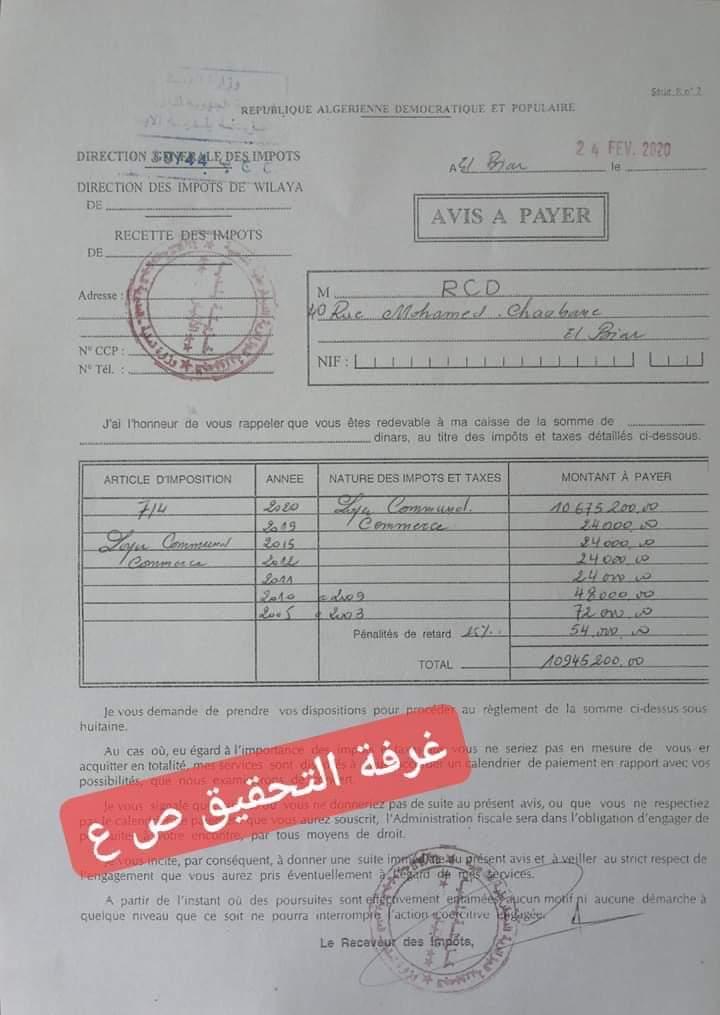 Série R n° 7
REPUBLIQUE ALGERIENNE DEMOCRATIQUE ET POPULAIRE
DIRECTION GENERALE DES IMPOTS
A El Biar le 24 FEV. 2020
DIRECTION DES IMPOTS DE WILAYA
DE
AVIS A PAYER
RECETTE DES IMPOTS
DE
Adresse :
M RCD
40 Rue Mohamed Chaabane
El Biar
N° CCP :
N° Tél. :
NIF :
J'ai l'honneur de vous rappeler que vous êtes redevable à ma caisse de la somme de
dinars, au titre des impôts et taxes détaillés ci-dessous.
ARTICLE D'IMPOSITION ANNEE NATURE DES IMPOTS ET TAXES MONTANT À PAYER
714 2020 Loyer Communal 10 675 200,00
2019 Commerce 24 000,00
Loyer Communal 2015 24 000,00
Commerce 2012 24 000,00
2011 24 000,00
2010 à 2009 48 000,00
2005 à 2003 72 000,00
Pénalités de retard 25% 54 000,00
TOTAL 10 945 200,00
Je vous demande de prendre vos dispositions pour procéder au règlement de la somme ci-dessus sous
huitaine.
Au cas où, eu égard à l'importance des vous ne seriez pas en mesure de vous er
acquitter en totalité, mes services sont calendrier de paiement en rapport avec vos
possibilités, que nous
Je vous signale vous ne donneriez pas de suite au présent avis, ou que vous ne respectiez
vous aurez souscrit, l'Administration fiscale sera dans l'obligation d'engager de
encontre, par tous moyens de droit.
Je vous incite, par conséquent, à donner une suite immédiate au présent avis et à veiller au strict respect de
l'engagement que vous aurez pris éventuellement à l'égard de mes services.
A partir de l'instant où des poursuites sont effectivement entamées, aucun motif ni aucune démarche à
quelque niveau que ce soit ne pourra interrompre l'action coercitive engagée.
Le Receveur des Impôts,
غرفة التحقيق ص ع